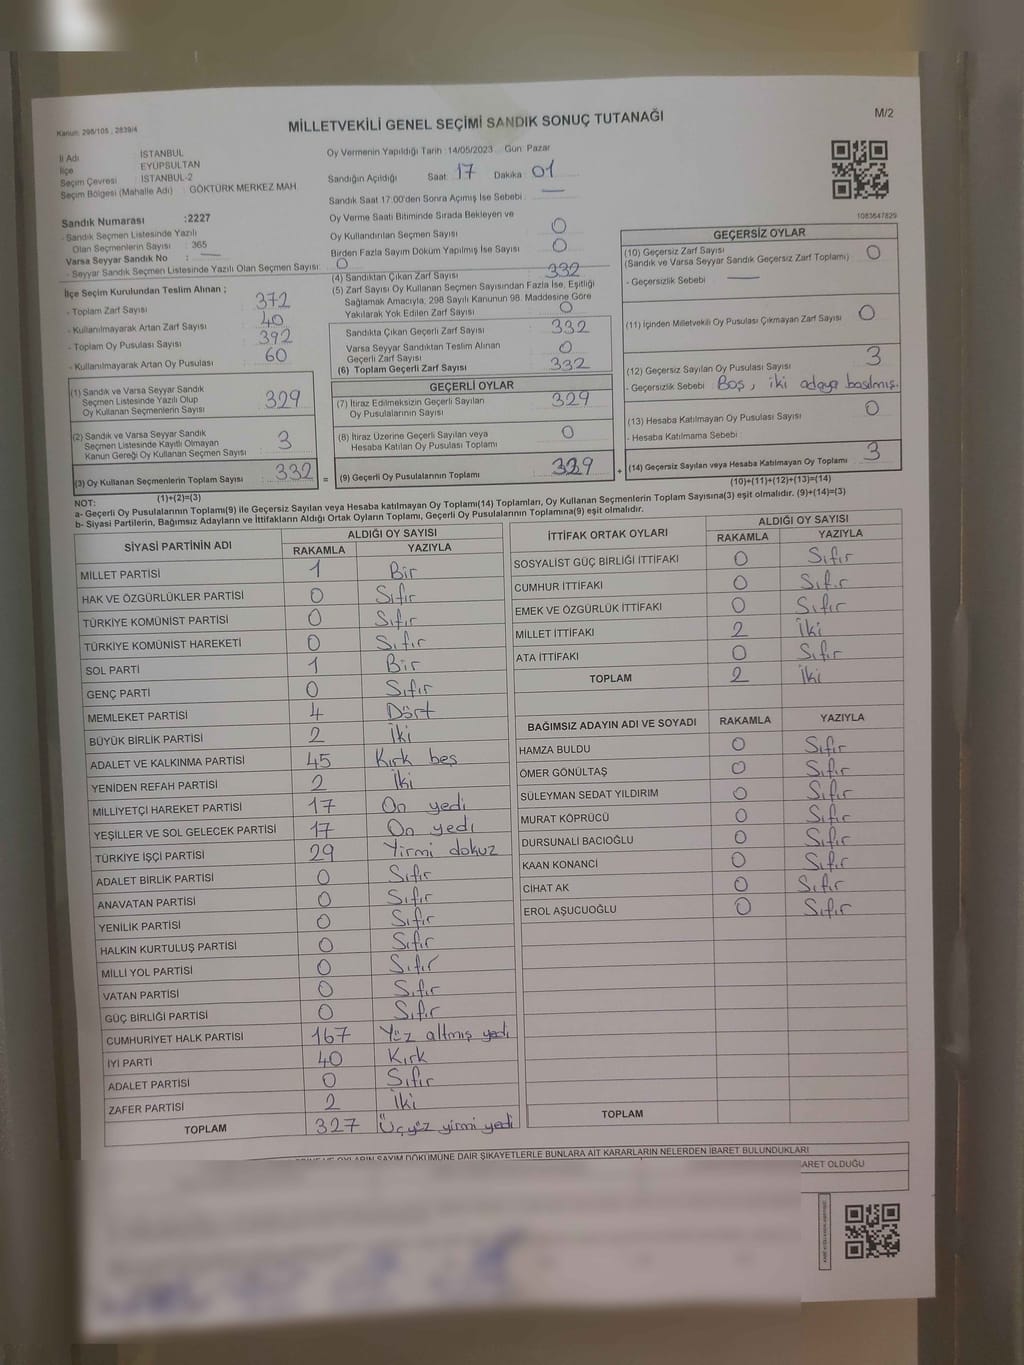 Kanun: 298/105 , 2839/4
MİLLETVEKİLİ GENEL SEÇİMİ SANDIK SONUÇ TUTANAĞI
M/2
İl Adı : İSTANBUL
İlçe : EYÜPSULTAN
Seçim Çevresi : İSTANBUL-2
Seçim Bölgesi (Mahalle Adı) : GÖKTÜRK MERKEZ MAH.
Oy Vermenin Yapıldığı Tarih : 14/05/2023 Gün: Pazar
Sandığın Açıldığı Saat: 17 Dakika: 01
Sandık Saat 17:00'den Sonra Açımış İse Sebebi : —
Oy Verme Saati Bitiminde Sırada Bekleyen ve
Oy Kullandırılan Seçmen Sayısı 0
Birden Fazla Sayım Döküm Yapılmış İse Sayısı 0
Sandık Numarası :2227
- Sandık Seçmen Listesinde Yazılı
Olan Seçmenlerin Sayısı : 365
Varsa Seyyar Sandık No : —
- Seyyar Sandık Seçmen Listesinde Yazılı Olan Seçmen Sayısı : 0
İlçe Seçim Kurulundan Teslim Alınan ;
- Toplam Zarf Sayısı 372
- Kullanılmayarak Artan Zarf Sayısı 40
- Toplam Oy Pusulası Sayısı 392
- Kullanılmayarak Artan Oy Pusulası 60
(1) Sandık ve Varsa Seyyar Sandık
Seçmen Listesinde Yazılı Olup
Oy Kullanan Seçmenlerin Sayısı 329
(2) Sandık ve Varsa Seyyar Sandık
Seçmen Listesinde Kayıtlı Olmayan
Kanun Gereği Oy Kullanan Seçmen Sayısı 3
(3) Oy Kullanan Seçmenlerin Toplam Sayısı 332
(1)+(2)=(3)
(4) Sandıktan Çıkan Zarf Sayısı 332
(5) Zarf Sayısı Oy Kullanan Seçmen Sayısından Fazla İse, Eşitliği
Sağlamak Amacıyla, 298 Sayılı Kanunun 98. Maddesine Göre
Yakılarak Yok Edilen Zarf Sayısı 0
Sandıkta Çıkan Geçerli Zarf Sayısı 332
Varsa Seyyar Sandıktan Teslim Alınan
Geçerli Zarf Sayısı 0
(6) Toplam Geçerli Zarf Sayısı 332
GEÇERLİ OYLAR
(7) İtiraz Edilmeksizin Geçerli Sayılan
Oy Pusulalarının Sayısı 329
(8) İtiraz Üzerine Geçerli Sayılan veya
Hesaba Katılan Oy Pusulası Toplamı 0
= (9) Geçerli Oy Pusulalarının Toplamı 329 +
1083647829
GEÇERSİZ OYLAR
(10) Geçersiz Zarf Sayısı
(Sandık ve Varsa Seyyar Sandık Geçersiz Zarf Toplamı) 0
- Geçersizlik Sebebi —
(11) İçinden Milletvekili Oy Pusulası Çıkmayan Zarf Sayısı 0
(12) Geçersiz Sayılan Oy Pusulası Sayısı 3
- Geçersizlik Sebebi Boş, iki adaya basılmış.
(13) Hesaba Katılmayan Oy Pusulası Sayısı 0
- Hesaba Katılmama Sebebi
(14) Geçersiz Sayılan veya Hesaba Katılmayan Oy Toplamı 3
(10)+(11)+(12)+(13)=(14)
NOT:
a- Geçerli Oy Pusulalarının Toplamı(9) ile Geçersiz Sayılan veya Hesaba katılmayan Oy Toplamı(14) Toplamları, Oy Kullanan Seçmenlerin Toplam Sayısına(3) eşit olmalıdır. (9)+(14)=(3)
b- Siyasi Partilerin, Bağımsız Adayların ve İttifakların Aldığı Ortak Oyların Toplamı, Geçerli Oy Pusulalarının Toplamına(9) eşit olmalıdır.
SİYASİ PARTİNİN ADI ALDIĞI OY SAYISI
RAKAMLA YAZIYLA
MİLLET PARTİSİ 1 Bir
HAK VE ÖZGÜRLÜKLER PARTİSİ 0 Sıfır
TÜRKİYE KOMÜNİST PARTİSİ 0 Sıfır
TÜRKİYE KOMÜNİST HAREKETİ 0 Sıfır
SOL PARTİ 1 Bir
GENÇ PARTİ 0 Sıfır
MEMLEKET PARTİSİ 4 Dört
BÜYÜK BİRLİK PARTİSİ 2 İki
ADALET VE KALKINMA PARTİSİ 45 Kırk beş
YENİDEN REFAH PARTİSİ 2 İki
MİLLİYETÇİ HAREKET PARTİSİ 17 On yedi
YEŞİLLER VE SOL GELECEK PARTİSİ 17 On yedi
TÜRKİYE İŞÇİ PARTİSİ 29 Yirmi dokuz
ADALET BİRLİK PARTİSİ 0 Sıfır
ANAVATAN PARTİSİ 0 Sıfır
YENİLİK PARTİSİ 0 Sıfır
HALKIN KURTULUŞ PARTİSİ 0 Sıfır
MİLLİ YOL PARTİSİ 0 Sıfır
VATAN PARTİSİ 0 Sıfır
GÜÇ BİRLİĞİ PARTİSİ 0 Sıfır
CUMHURİYET HALK PARTİSİ 167 Yüz altmış yedi
İYİ PARTİ 40 Kırk
ADALET PARTİSİ 0 Sıfır
ZAFER PARTİSİ 2 İki
TOPLAM 327 Üçyüz yirmi yedi
İTTİFAK ORTAK OYLARI ALDIĞI OY SAYISI
RAKAMLA YAZIYLA
SOSYALİST GÜÇ BİRLİĞİ İTTİFAKI 0 Sıfır
CUMHUR İTTİFAKI 0 Sıfır
EMEK VE ÖZGÜRLÜK İTTİFAKI 0 Sıfır
MİLLET İTTİFAKI 2 İki
ATA İTTİFAKI 0 Sıfır
TOPLAM 2 İki
BAĞIMSIZ ADAYIN ADI VE SOYADI RAKAMLA YAZIYLA
HAMZA BULDU 0 Sıfır
ÖMER GÖNÜLTAŞ 0 Sıfır
SÜLEYMAN SEDAT YILDIRIM 0 Sıfır
MURAT KÖPRÜCÜ 0 Sıfır
DURSUNALİ BACIOĞLU 0 Sıfır
KAAN KONANCİ 0 Sıfır
CİHAT AK 0 Sıfır
EROL AŞUCUOĞLU 0 Sıfır
TOPLAM
OYLARIN SAYIM DÖKÜMÜNE DAİR ŞİKAYETLERLE BUNLARA AİT KARARLARIN NELERDEN İBARET BULUNDUKLARI
OLDUĞU